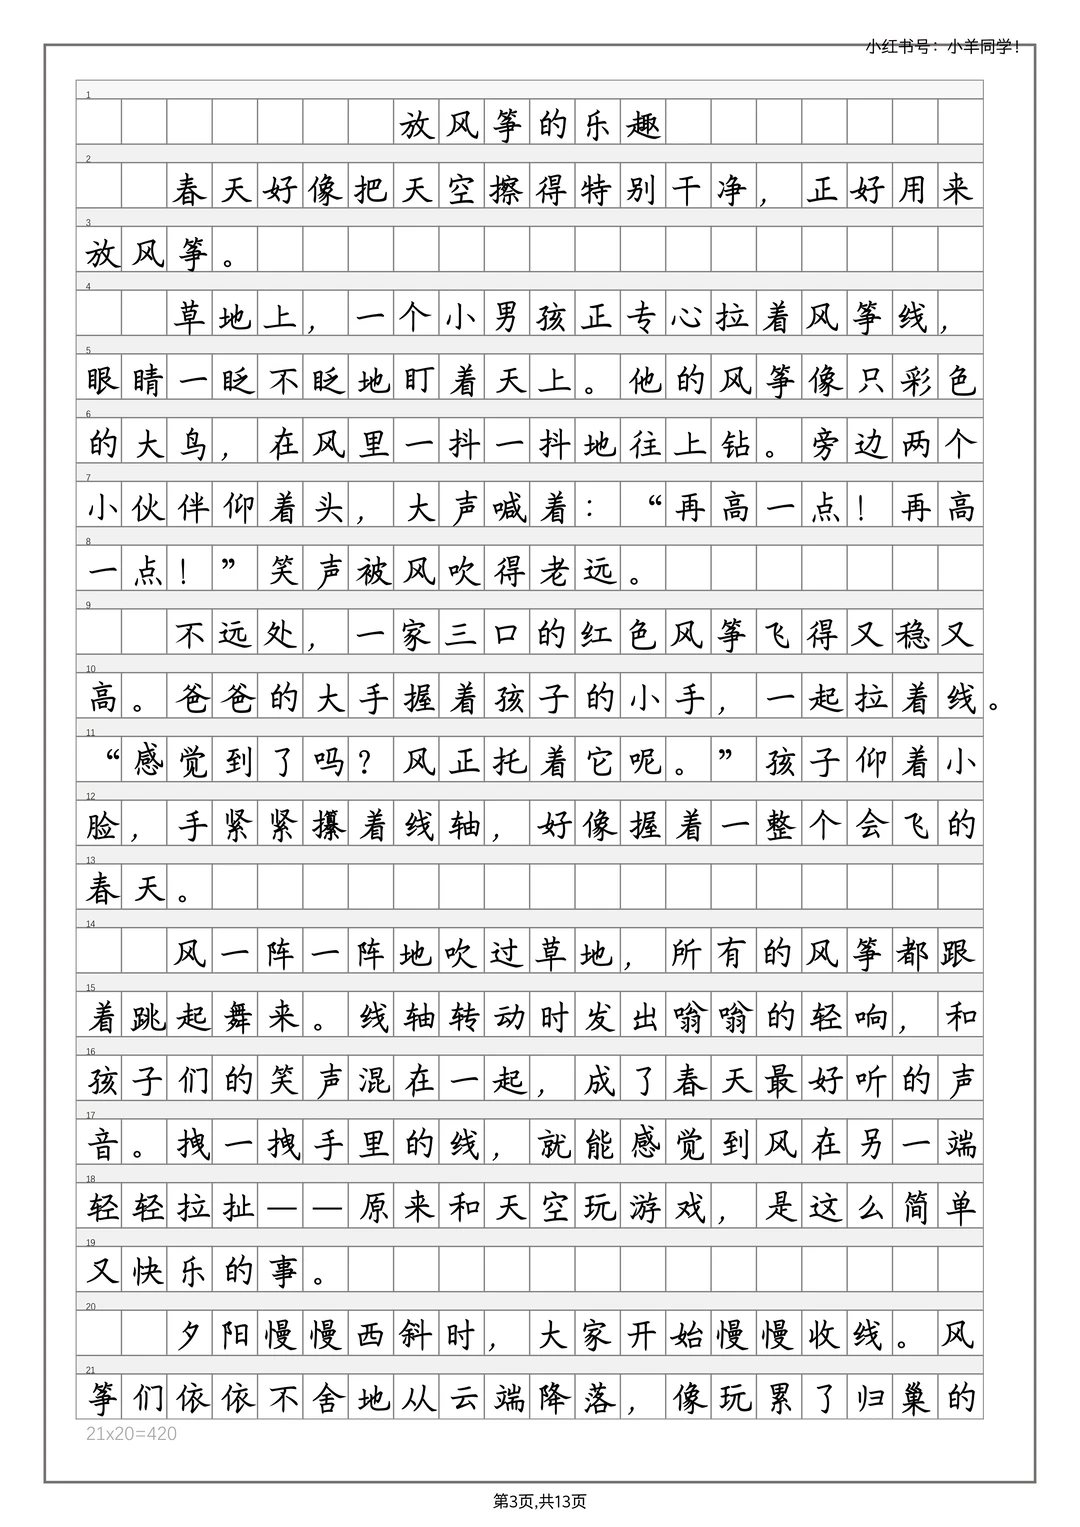 小红书号：小羊同学！
1
放风筝的乐趣
2
春天好像把天空擦得特别干净，正好用来
3
放风筝。
4
草地上，一个小男孩正专心拉着风筝线，
5
眼睛一眨不眨地盯着天上。他的风筝像只彩色
6
的大鸟，在风里一抖一抖地往上钻。旁边两个
7
小伙伴仰着头，大声喊着：“再高一点！再高
8
一点！”笑声被风吹得老远。
9
不远处，一家三口的红色风筝飞得又稳又
10
高。爸爸的大手握着孩子的小手，一起拉着线。
11
“感觉到了吗？风正托着它呢。”孩子仰着小
12
脸，手紧紧攥着线轴，好像握着一整个会飞的
13
春天。
14
风一阵一阵地吹过草地，所有的风筝都跟
15
着跳起舞来。线轴转动时发出嗡嗡的轻响，和
16
孩子们的笑声混在一起，成了春天最好听的声
17
音。拽一拽手里的线，就能感觉到风在另一端
18
轻轻拉扯——原来和天空玩游戏，是这么简单
19
又快乐的事。
20
夕阳慢慢西斜时，大家开始慢慢收线。风
21
筝们依依不舍地从云端降落，像玩累了归巢的
21x20=420
第3页,共13页